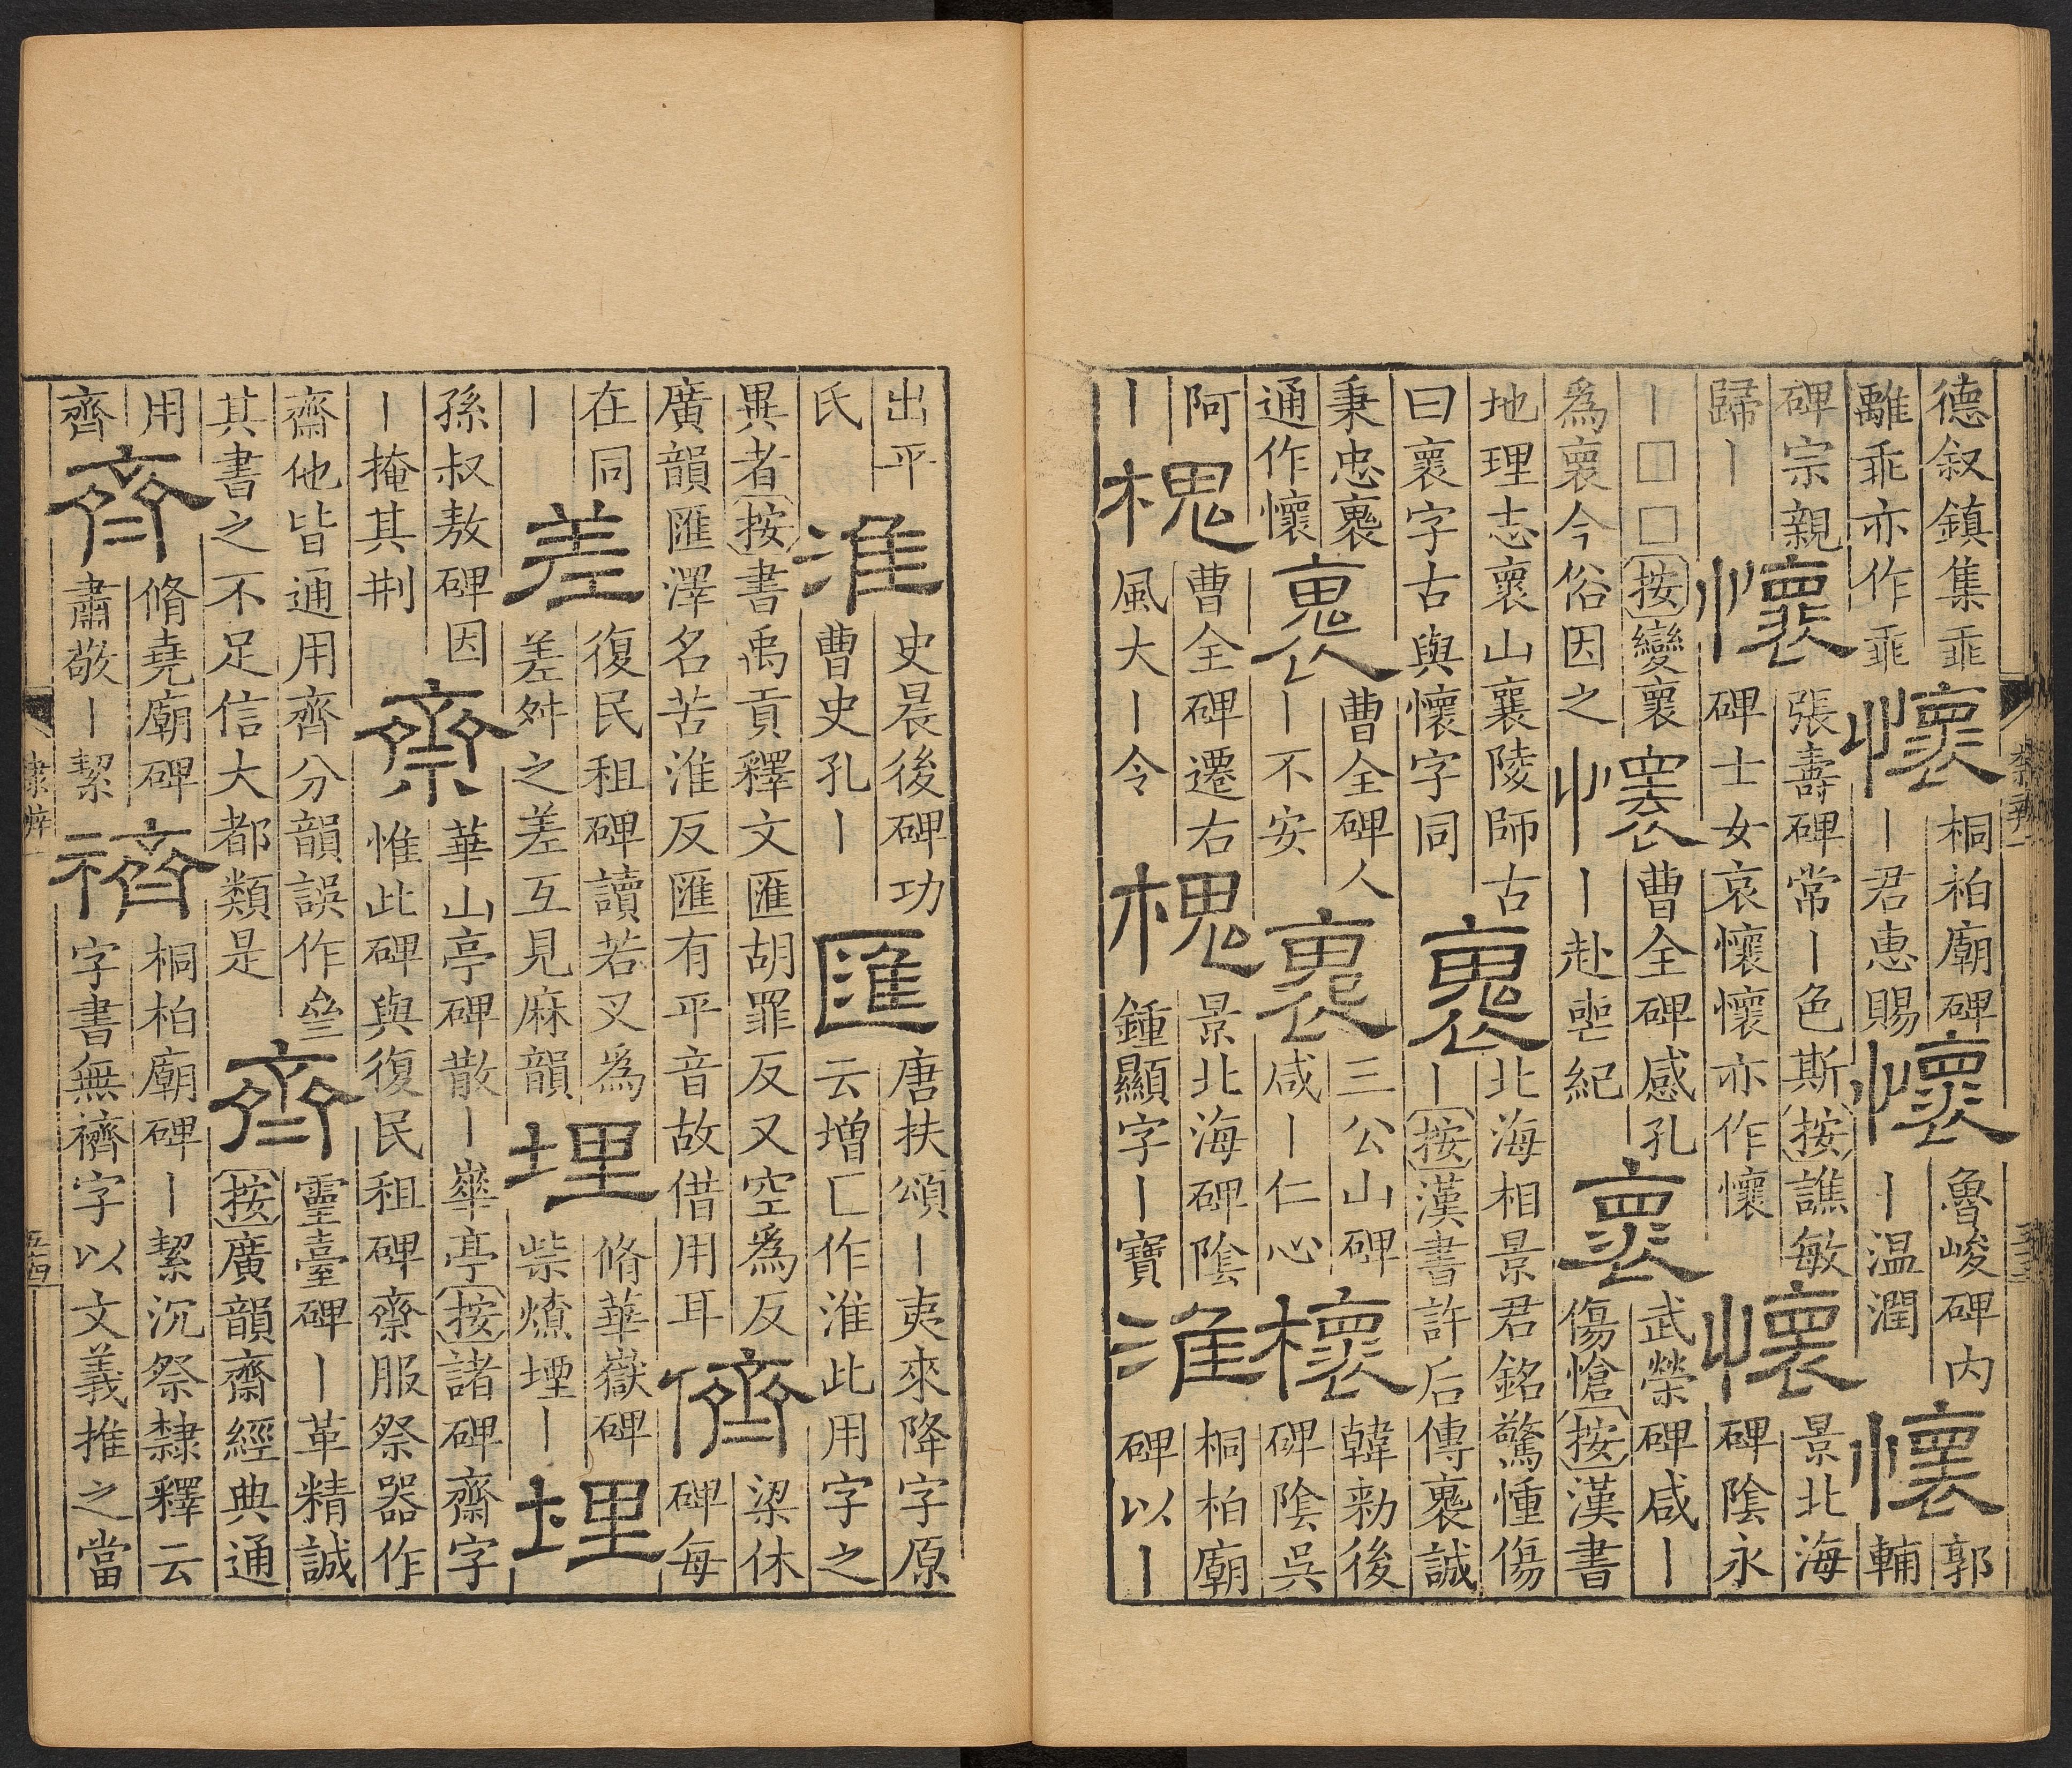 德叙鎮集乖
離乖亦作乖
懷
桐柏廟碑
｜君惠賜
懷
魯峻碑内
｜温潤
懷
郭
輔
碑宗親
歸｜
懷
張壽碑常｜色斯按譙敏
碑士女哀懷懷亦作懷
懷
景北海
碑陰永
｜□□按變褱
爲褱今俗因之
懷
曹全碑感孔
｜赴喪紀
褱
武榮碑咸｜
傷愴按漢書
地理志褱山襄陵師古
曰褱字古與懷字同
褢
北海相景君銘驚慟傷
｜按漢書許后傳褱誠
秉忠褱
通作懷
褢
曹全碑人
｜不安
褢
三公山碑
咸｜仁心
櫰
韓勑後
碑陰吳
阿
｜
槐
曹全碑遷右
風大｜令
槐
景北海碑陰
鍾顯字｜寶
淮
桐柏廟
碑以｜
出平
氏
淮
史晨後碑功
曹史孔｜
匯
唐扶頌｜夷來降字原
云增匚作淮此用字之
異者按書禹貢釋文匯胡罪反又空爲反
廣韻匯澤名苦淮反匯有平音故借用耳
儕
梁休
碑每
在同
｜
差
復民租碑讀若叉爲
差舛之差互見麻韻
埋
脩華嶽碑
柴燎堙｜
埋
孫叔敖碑因
｜掩其㓝
齋
華山亭碑散｜崋亭按諸碑齋字
惟此碑與復民租碑齋服祭器作
齋他皆通用齊分韻誤作亝
其書之不足信大都類是
齊
靈臺碑｜革精誠
按廣韻齋經典通
用
齊
齊
脩堯廟碑
肅敬｜絜
𥜥
桐柏廟碑｜絜沉祭隸釋云
字書無𥜥字以文義推之當
隸辨一
五十四